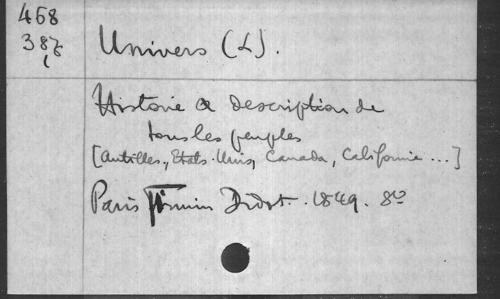 468
387
Univers (L).
Histoire & description de
tous les peuples
[Antilles, Etats-Unis, Canada, Californie ...]
Paris Firmin Didot. 1849. 8º